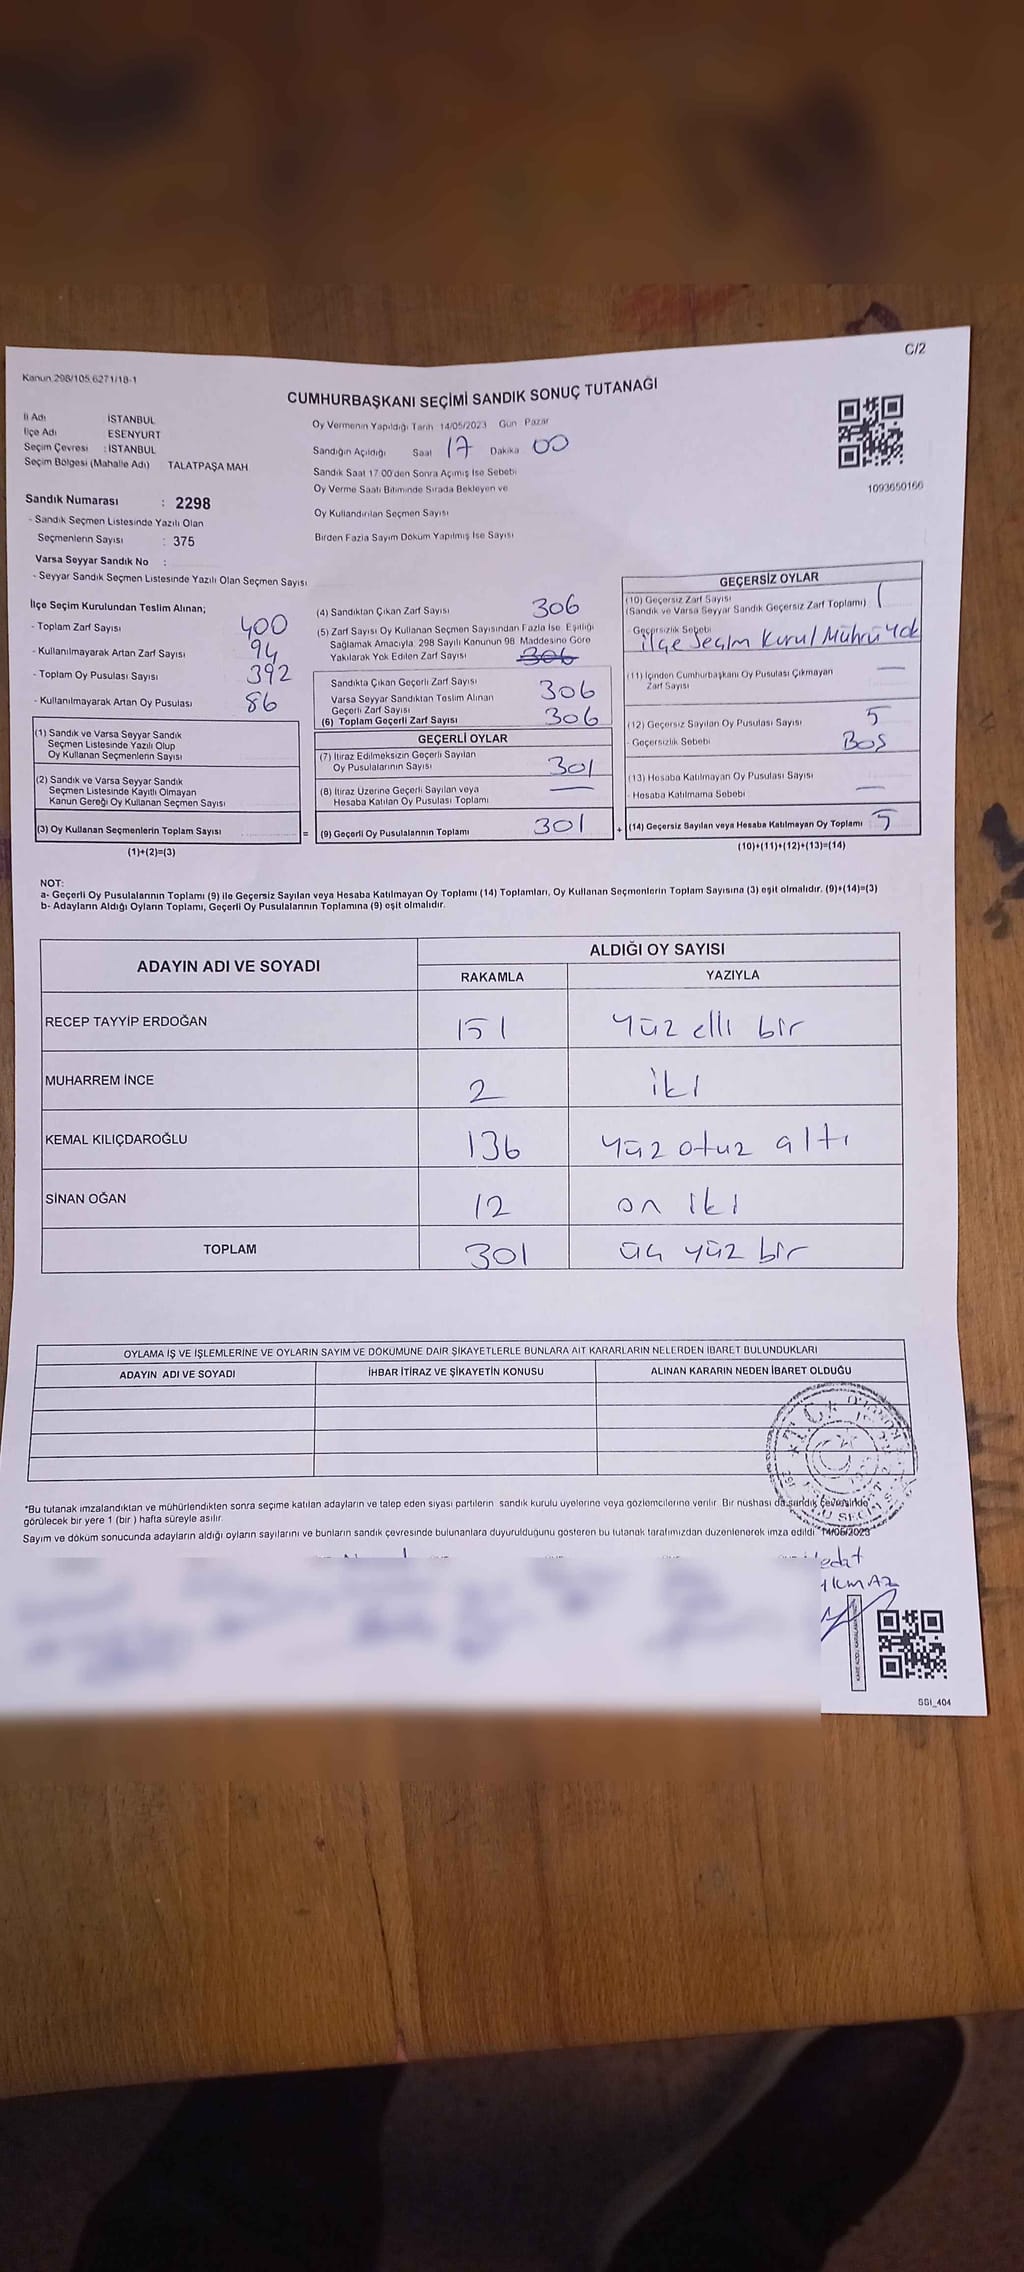 C/2
Kanun 298/105,6271/18-1
CUMHURBAŞKANI SEÇİMİ SANDIK SONUÇ TUTANAĞI
İl Adı : İSTANBUL
İlçe Adı : ESENYURT
Seçim Çevresi : İSTANBUL
Seçim Bölgesi (Mahalle Adı) TALATPAŞA MAH.
Sandık Numarası : 2298
- Sandık Seçmen Listesinde Yazılı Olan
Seçmenlerin Sayısı : 375
Varsa Seyyar Sandık No :
- Seyyar Sandık Seçmen Listesinde Yazılı Olan Seçmen Sayısı
Oy Vermenin Yapıldığı Tarih 14/05/2023 Gün Pazar
Sandığın Açıldığı Saat 17 Dakika 00
Sandık Saat 17.00'den Sonra Açılmış İse Sebebi
Oy Verme Saati Bitiminde Sırada Bekleyen ve
Oy Kullandırılan Seçmen Sayısı
Birden Fazla Sayım Döküm Yapılmış İse Sayısı
1093650166
İlçe Seçim Kurulundan Teslim Alınan;
- Toplam Zarf Sayısı 400
- Kullanılmayarak Artan Zarf Sayısı 94
- Toplam Oy Pusulası Sayısı 392
- Kullanılmayarak Artan Oy Pusulası 86
(1) Sandık ve Varsa Seyyar Sandık
Seçmen Listesinde Yazılı Olup
Oy Kullanan Seçmenlerin Sayısı
(2) Sandık ve Varsa Seyyar Sandık
Seçmen Listesinde Kayıtlı Olmayan
Kanun Gereği Oy Kullanan Seçmen Sayısı
(3) Oy Kullanan Seçmenlerin Toplam Sayısı
(1)+(2)=(3)
(4) Sandıktan Çıkan Zarf Sayısı 306
(5) Zarf Sayısı Oy Kullanan Seçmen Sayısından Fazla İse, Eşitliği
Sağlamak Amacıyla, 298 Sayılı Kanunun 98. Maddesine Göre
Yakılarak Yok Edilen Zarf Sayısı 306
Sandıkta Çıkan Geçerli Zarf Sayısı 306
Varsa Seyyar Sandıktan Teslim Alınan
Geçerli Zarf Sayısı
(6) Toplam Geçerli Zarf Sayısı 306
GEÇERLİ OYLAR
(7) İtiraz Edilmeksizin Geçerli Sayılan
Oy Pusulalarının Sayısı 301
(8) İtiraz Üzerine Geçerli Sayılan veya
Hesaba Katılan Oy Pusulası Toplamı —
= (9) Geçerli Oy Pusulalarının Toplamı 301
GEÇERSİZ OYLAR
(10) Geçersiz Zarf Sayısı
(Sandık ve Varsa Seyyar Sandık Geçersiz Zarf Toplamı) 1
- Geçersizlik Sebebi
ilçe Seçim Kurul Mührü Yok
(11) İçinden Cumhurbaşkanı Oy Pusulası Çıkmayan
Zarf Sayısı —
(12) Geçersiz Sayılan Oy Pusulası Sayısı 5
- Geçersizlik Sebebi BOS
(13) Hesaba Katılmayan Oy Pusulası Sayısı
- Hesaba Katılmama Sebebi —
+ (14) Geçersiz Sayılan veya Hesaba Katılmayan Oy Toplamı 5
(10)+(11)+(12)+(13)=(14)
NOT:
a- Geçerli Oy Pusulalarının Toplamı (9) ile Geçersiz Sayılan veya Hesaba Katılmayan Oy Toplamı (14) Toplamları, Oy Kullanan Seçmenlerin Toplam Sayısına (3) eşit olmalıdır. (9)+(14)=(3)
b- Adayların Aldığı Oyların Toplamı, Geçerli Oy Pusulalarının Toplamına (9) eşit olmalıdır.
ADAYIN ADI VE SOYADI ALDIĞI OY SAYISI
RAKAMLA YAZIYLA
RECEP TAYYİP ERDOĞAN 151 yüz elli bir
MUHARREM İNCE 2 iki
KEMAL KILIÇDAROĞLU 136 yüz otuz altı
SİNAN OĞAN 12 on iki
TOPLAM 301 üç yüz bir
OYLAMA İŞ VE İŞLEMLERİNE VE OYLARIN SAYIM VE DÖKÜMÜNE DAİR ŞİKAYETLERLE BUNLARA AİT KARARLARIN NELERDEN İBARET BULUNDUKLARI
ADAYIN ADI VE SOYADI İHBAR İTİRAZ VE ŞİKAYETİN KONUSU ALINAN KARARIN NEDEN İBARET OLDUĞU
*Bu tutanak imzalandıktan ve mühürlendikten sonra seçime katılan adayların ve talep eden siyasi partilerin sandık kurulu üyelerine veya gözlemcilerine verilir. Bir nüshası da sandık çevresinde
görülecek bir yere 1 (bir ) hafta süreyle asılır.
Sayım ve döküm sonucunda adayların aldığı oyların sayılarını ve bunların sandık çevresinde bulunanlara duyurulduğunu gösteren bu tutanak tarafımızdan düzenlenerek imza edildi. 14/05/2023
SSI_404